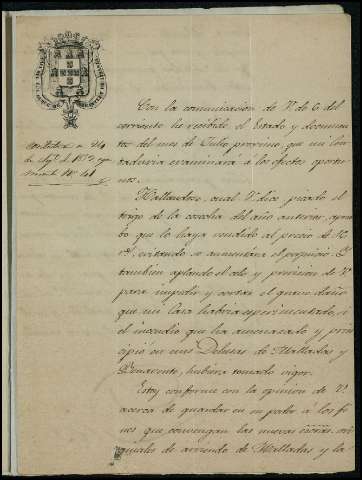 Contestada en 24
de Ag.to de 1872,
Con la comunicacion de V. de 6 del
corriente he recibido el Estado y documen
tos del mes de Julio proximo, que mi Con
taduria examinará á los efectos oportu
nos.
Hallandose, cual V. dice, picado el
trigo de la cosecha del año anterior, aprue
bo que lo haya vendido al precio de
evitando se aumentára el perjuicio. Y
tambien aplaudo el celo y prevision de V.
para impedir y cortar el grave daño
que mi Casa habria experimentado, si
el incendio que ha amenazado y prin
cipió en mis Dehesas de Malladas y
Benavente, hubiera tomado vigor.
Estoy conforme con la opinion de V.
acerca de guardar en su poder á los fi
nes que convengan las nuevas escrits. ori
ginales de arriendo de Malladas y la